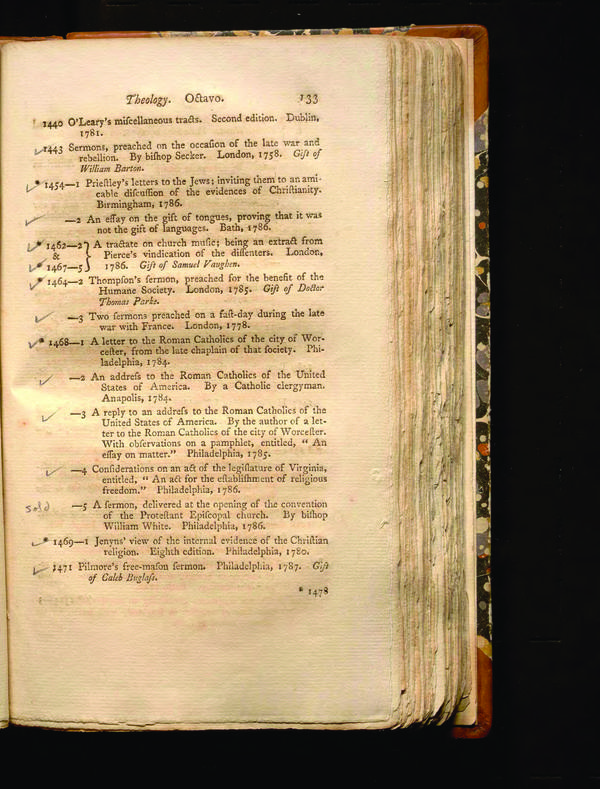 Theology. Octavo. 133
1440 O'Leary's miſcellaneous tracts. Second edition. Dublin,
1781.
1443 Sermons, preached on the occaſion of the late war and
rebellion. By biſhop Secker. London, 1758. Gift of
William Barton.
* 1454—1 Prieſtley's letters to the Jews; inviting them to an ami-
cable diſcuſſion of the evidences of Chriſtianity.
Birmingham, 1786.
—2 An eſſay on the gift of tongues, proving that it was
not the gift of languages. Bath, 1786.
* 1462—2 } A tractate on church muſic; being an extract from
& Pierce's vindication of the diſſenters. London,
* 1467—5 1786. Gift of Samuel Vaughen.
* 1464—2 Thompſon's ſermon, preached for the benefit of the
Humane Society. London, 1785. Gift of Doctor
Thomas Parke.
—3 Two ſermons preached on a faſt-day during the late
war with France. London, 1778.
* 1468—1 A letter to the Roman Catholics of the city of Wor-
ceſter, from the late chaplain of that ſociety. Phi-
ladelphia, 1784.
—2 An addreſs to the Roman Catholics of the United
States of America. By a Catholic clergyman.
Anapolis, 1784.
—3 A reply to an addreſs to the Roman Catholics of the
United States of America. By the author of a let-
ter to the Roman Catholics of the city of Worceſter.
With obſervations on a pamphlet, entitled, “ An
eſſay on matter.” Philadelphia, 1785.
—4 Conſiderations on an act of the legiſlature of Virginia,
entitled, “ An act for the eſtabliſhment of religious
freedom.” Philadelphia, 1786.
sold —5 A ſermon, delivered at the opening of the convention
of the Proteſtant Epiſcopal church. By biſhop
William White. Philadelphia, 1786.
* 1469—1 Jenyns' view of the internal evidence of the Chriſtian
religion. Eighth edition. Philadelphia, 1780.
1471 Pilmore's free-maſon ſermon. Philadelphia, 1787. Gift
of Caleb Buglaſs.
* 1478